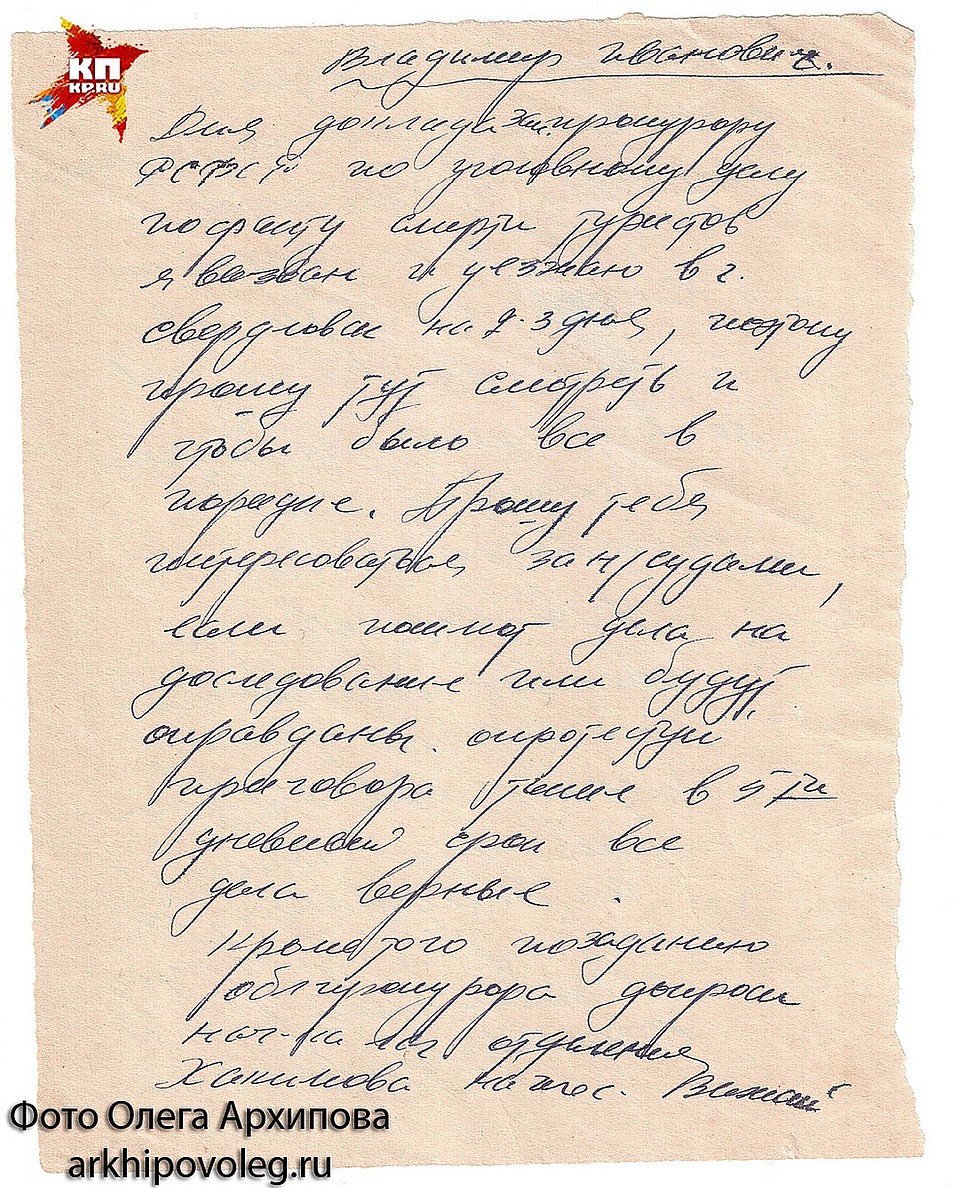 КП
KP.RU
Владимир Иванович.
Для доклада Зам. прокурору
РСФСР по уголовному делу
по факту смерти туристов
я вызван и уезжаю в г.
Свердловск на 2-3 дня, поэтому
прошу тут смотреть и
чтобы было все в
порядке. Прошу тебя
интересоваться за н/судами,
если пошлют дела на
доследование или будут
оправданы опротестуй
приговора только в 5ти
дневный срок все
дела верные.
Кроме того по заданию
облпрокурора допроси
нач-ка отделения
Хакимова на пос. Вижай
Фото Олега Архипова
arkhipovoleg.ru